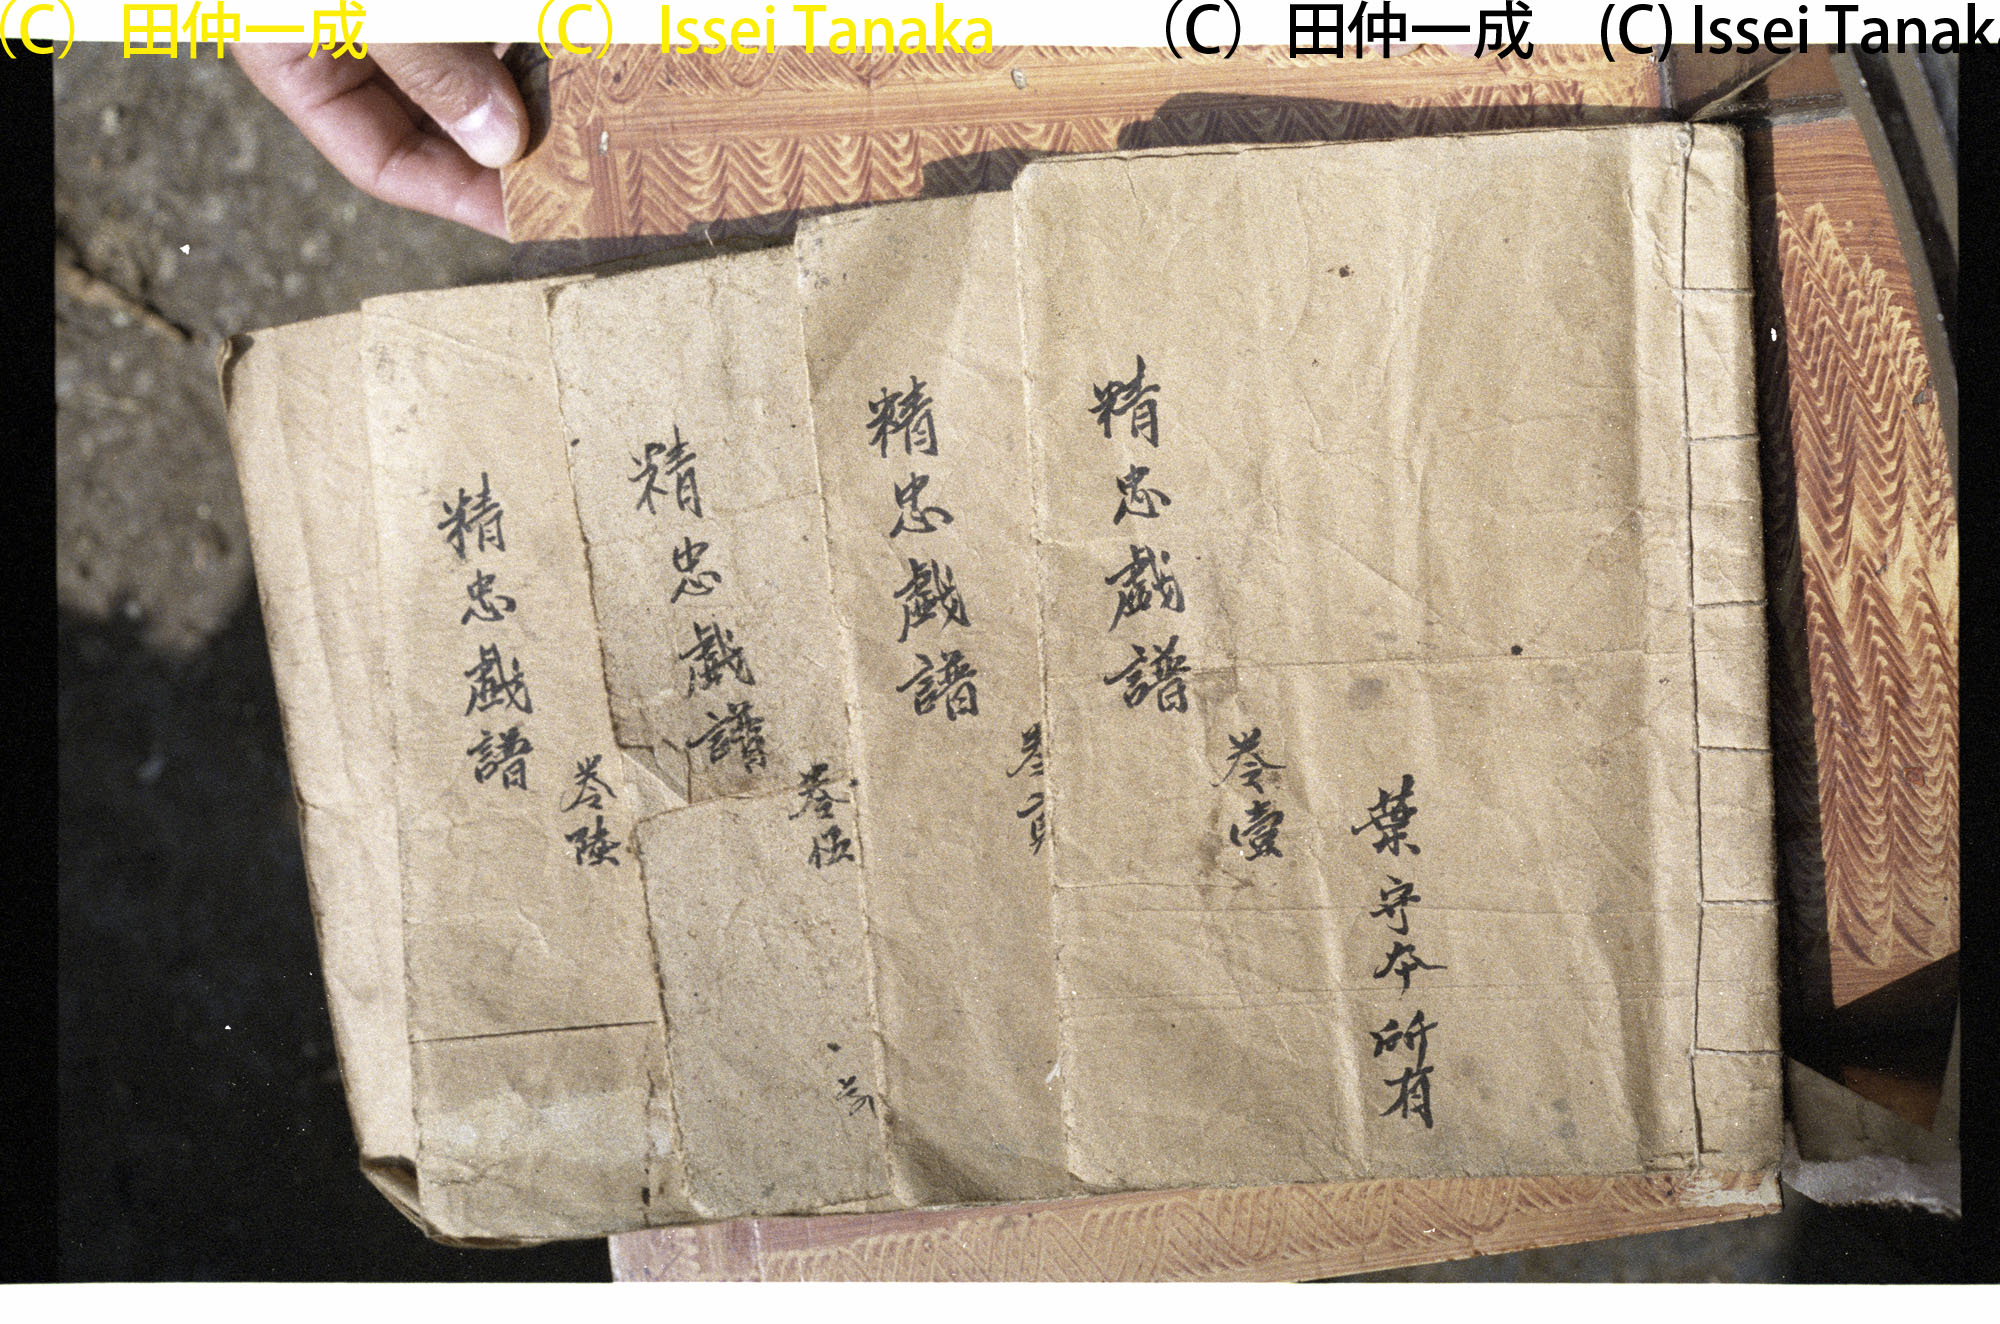 (C) 田仲一成
(C) Issei Tanaka
(C) 田仲一成
(C) Issei Tanaka
葉守本所有
精忠戯譜
卷壹
精忠戯譜
卷貳
精忠戯譜
卷伍
精忠戯譜
卷陸